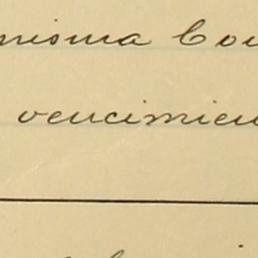 misma Cou
vencimien